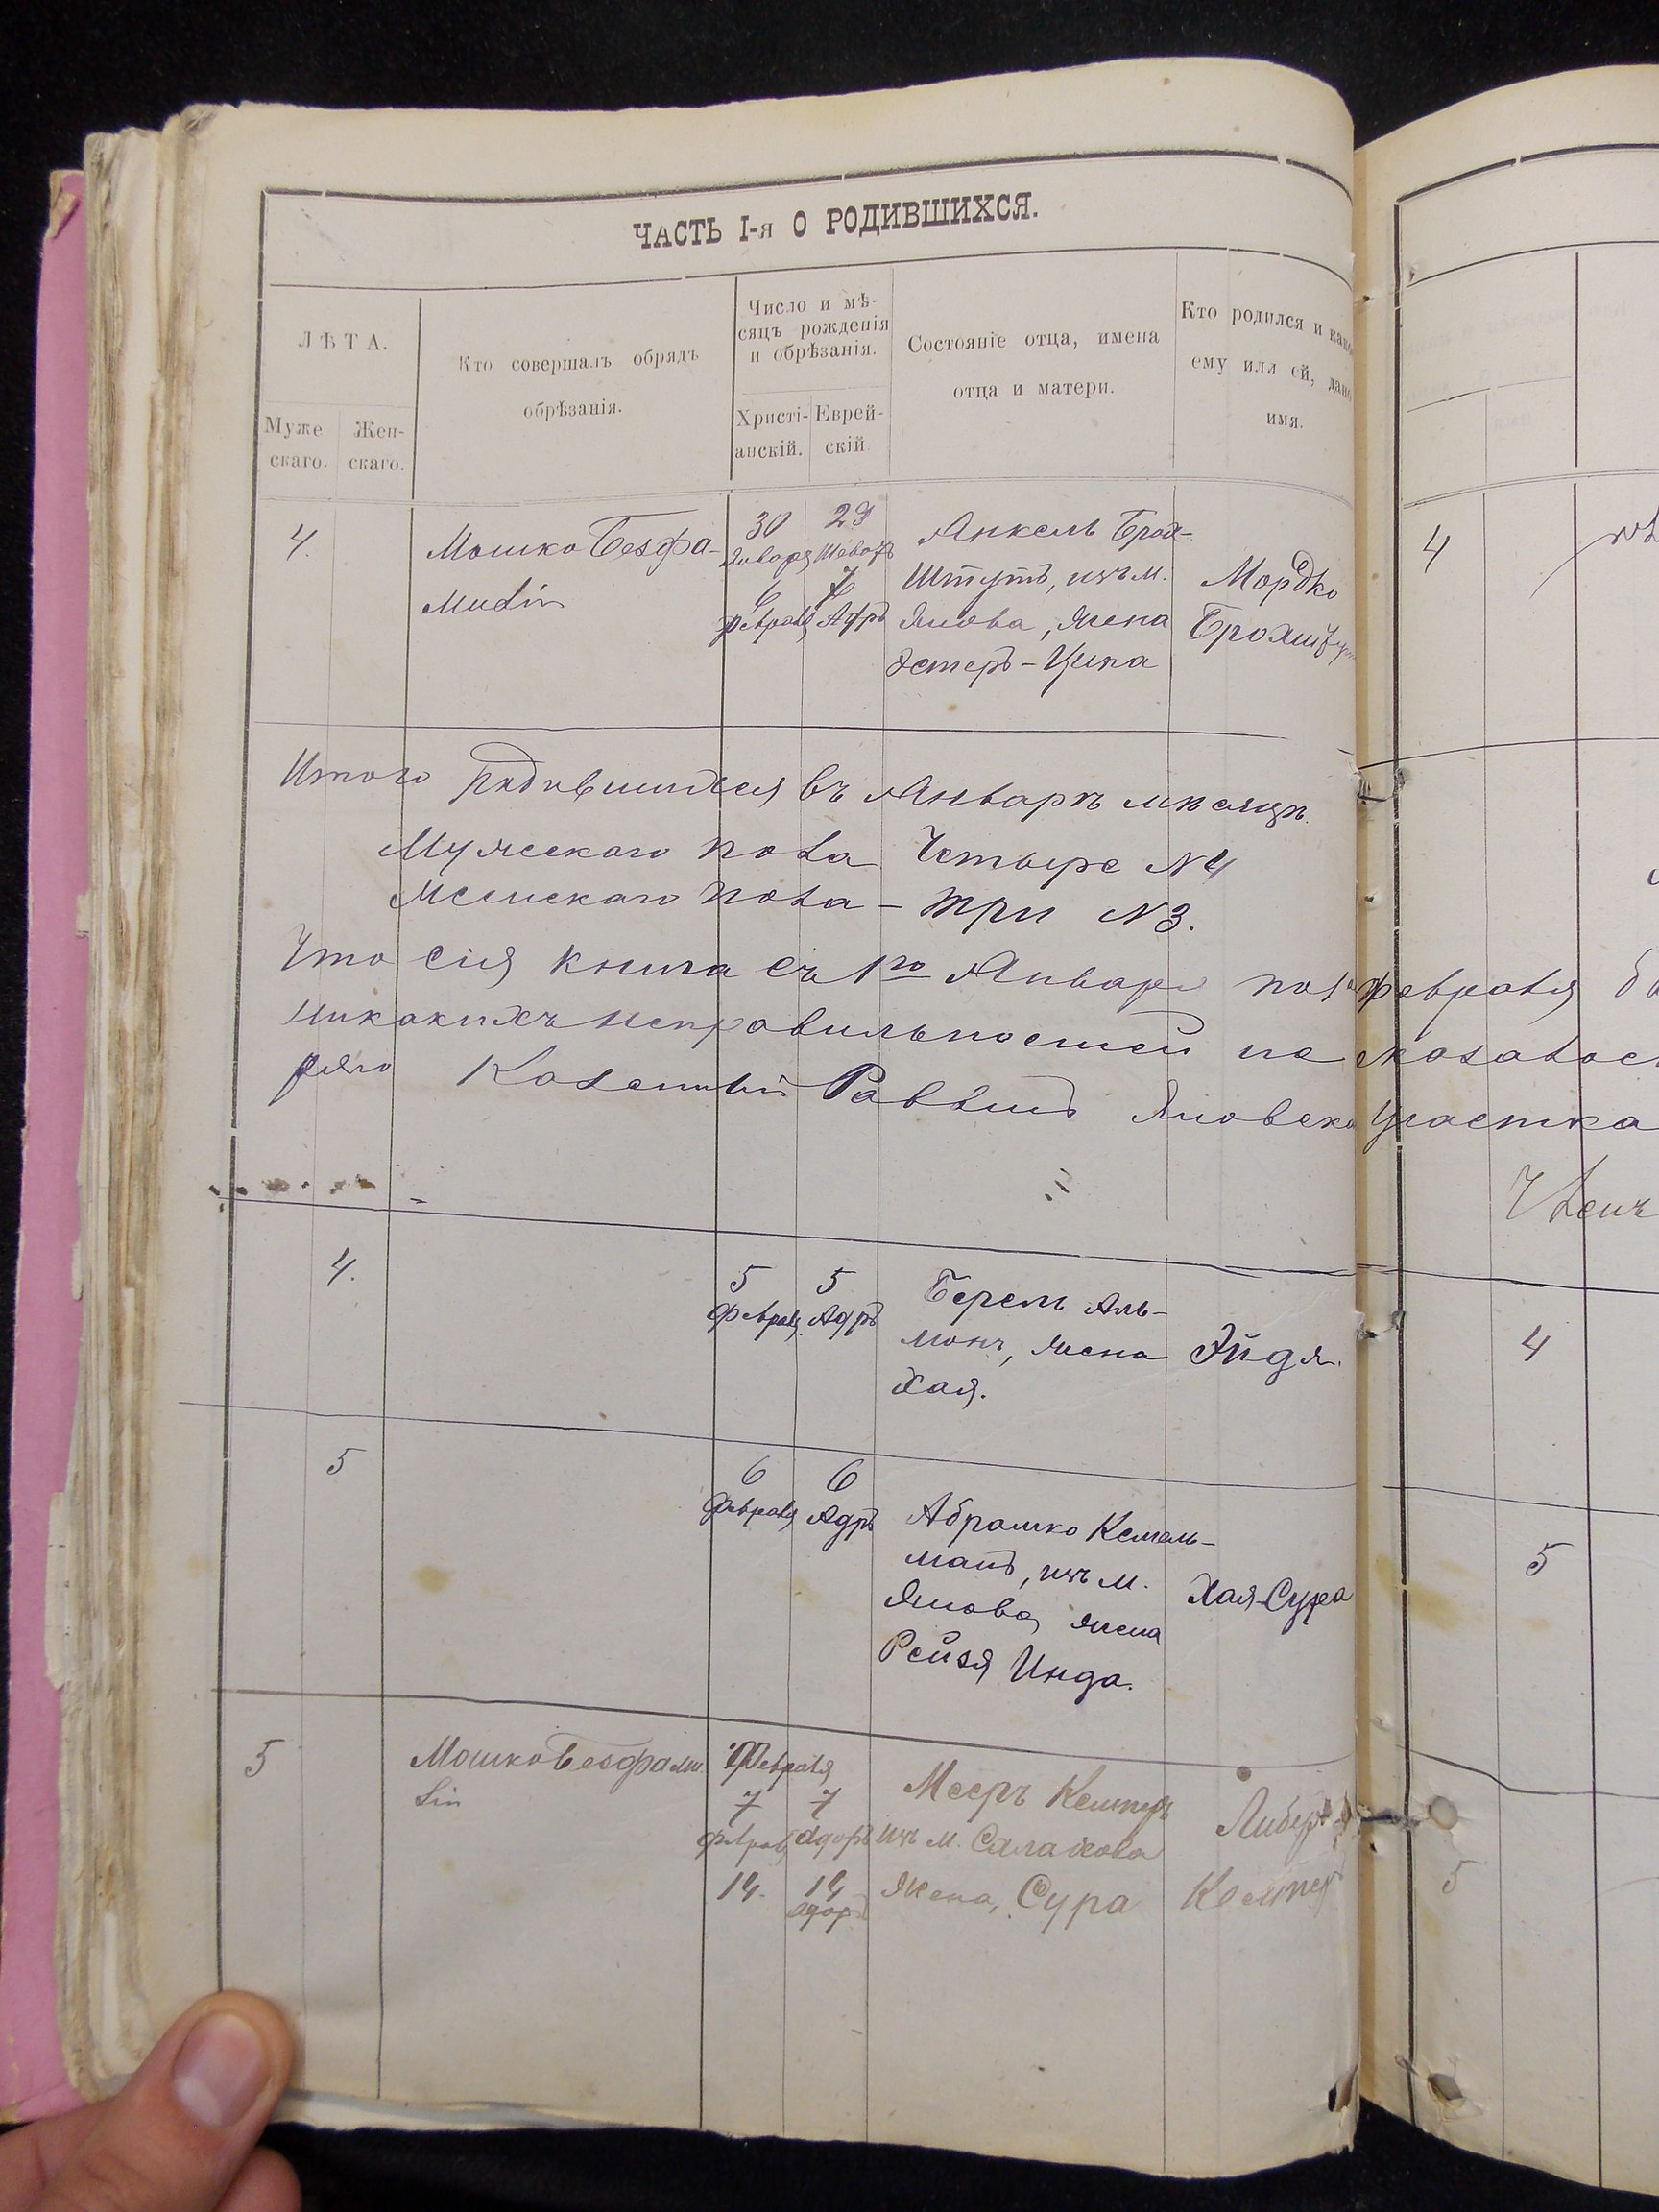 ЧАСТЬ I-я О РОДИВШИХСЯ.
ЛѢТА.
Муже
скаго.
Жен-
скаго.
Кто совершалъ обрядъ
обрѣзанія.
Число и мѣ-
сяцъ рожденія
и обрѣзанія.
Христі-
анскій.
Еврей-
скій
Состояніе отца, имена
отца и матери.
Кто родился и како
ему илл ей, дано
имя.
4.
Мошко Безфа-
милій
30
Января
6
Февраля
29
Шеватъ
7
Адръ
Янкель Брох-
Штутъ, изъ м.
Янова, жена
Эстеръ-Ципа
Мордко
Брохшту
4
Итого родившихся въ Январѣ мѣсяцѣ.
Мужескаго пола Четыре N 4
Женскаго пола - три N 3.
Что сія книга съ 1го Января по 1е Февраля
никакихъ неправильностей не
Казенный Раввинъ Яновск Участка
4.
5
Февраля
5
Адръ
Берель Аль-
монъ, жена
Хая.
Эйдя.
4
5
6
Февраля
6
Адръ
Абрамко Кемель-
манъ, изъ м.
Янова, жена
Рейзя Инда.
Хая-Сура
5
5
Мошко Безфами
лій
Февраля
7
Феврал
14.
7
Адоръ
14
Адоръ
Мееръ Кемпер
изъ м. Салахова
жена, Сура
Либер
Кемпер
5